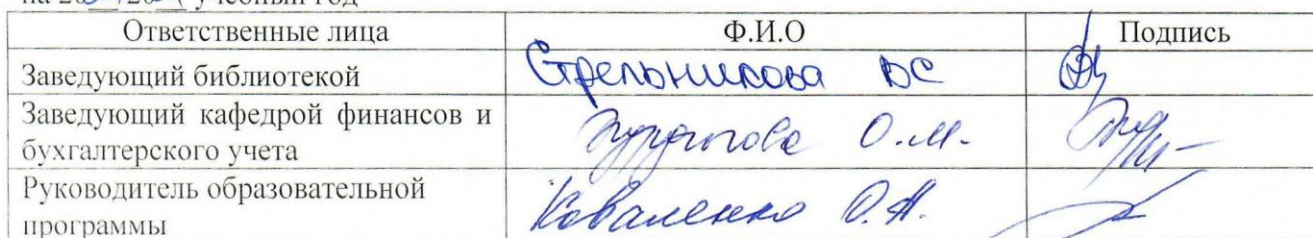 на 20 20 учебный год
Ответственные лица Ф.И.О Подпись
Заведующий библиотекой Стрельникова ВС
Заведующий кафедрой финансов и
бухгалтерского учета О.М.
Руководитель образовательной
программы Коваленко О.А.